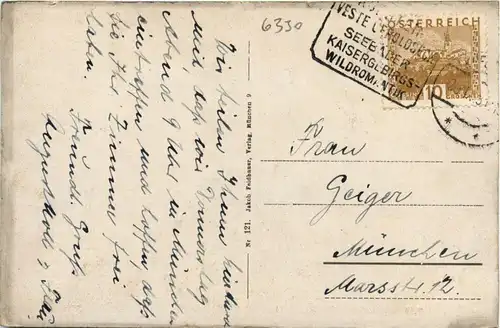 Wir teilen Ihnen
mit daß wir Donnerstag
Abend 9 Uhr in München
eintreffen und hoffen, daß
Sie Ihr Zimmer frei
haben.
Freundl. Gruß
u. Frau
Nr 121. Jakob Feldbauer, Verlag, München 9
6330
VESTE
SEEBÄDER
KAISERGEBIRGS-
WILDROMANTIK
ÖSTERREICH
10
Frau
Geiger
München
Marsstr. 12.